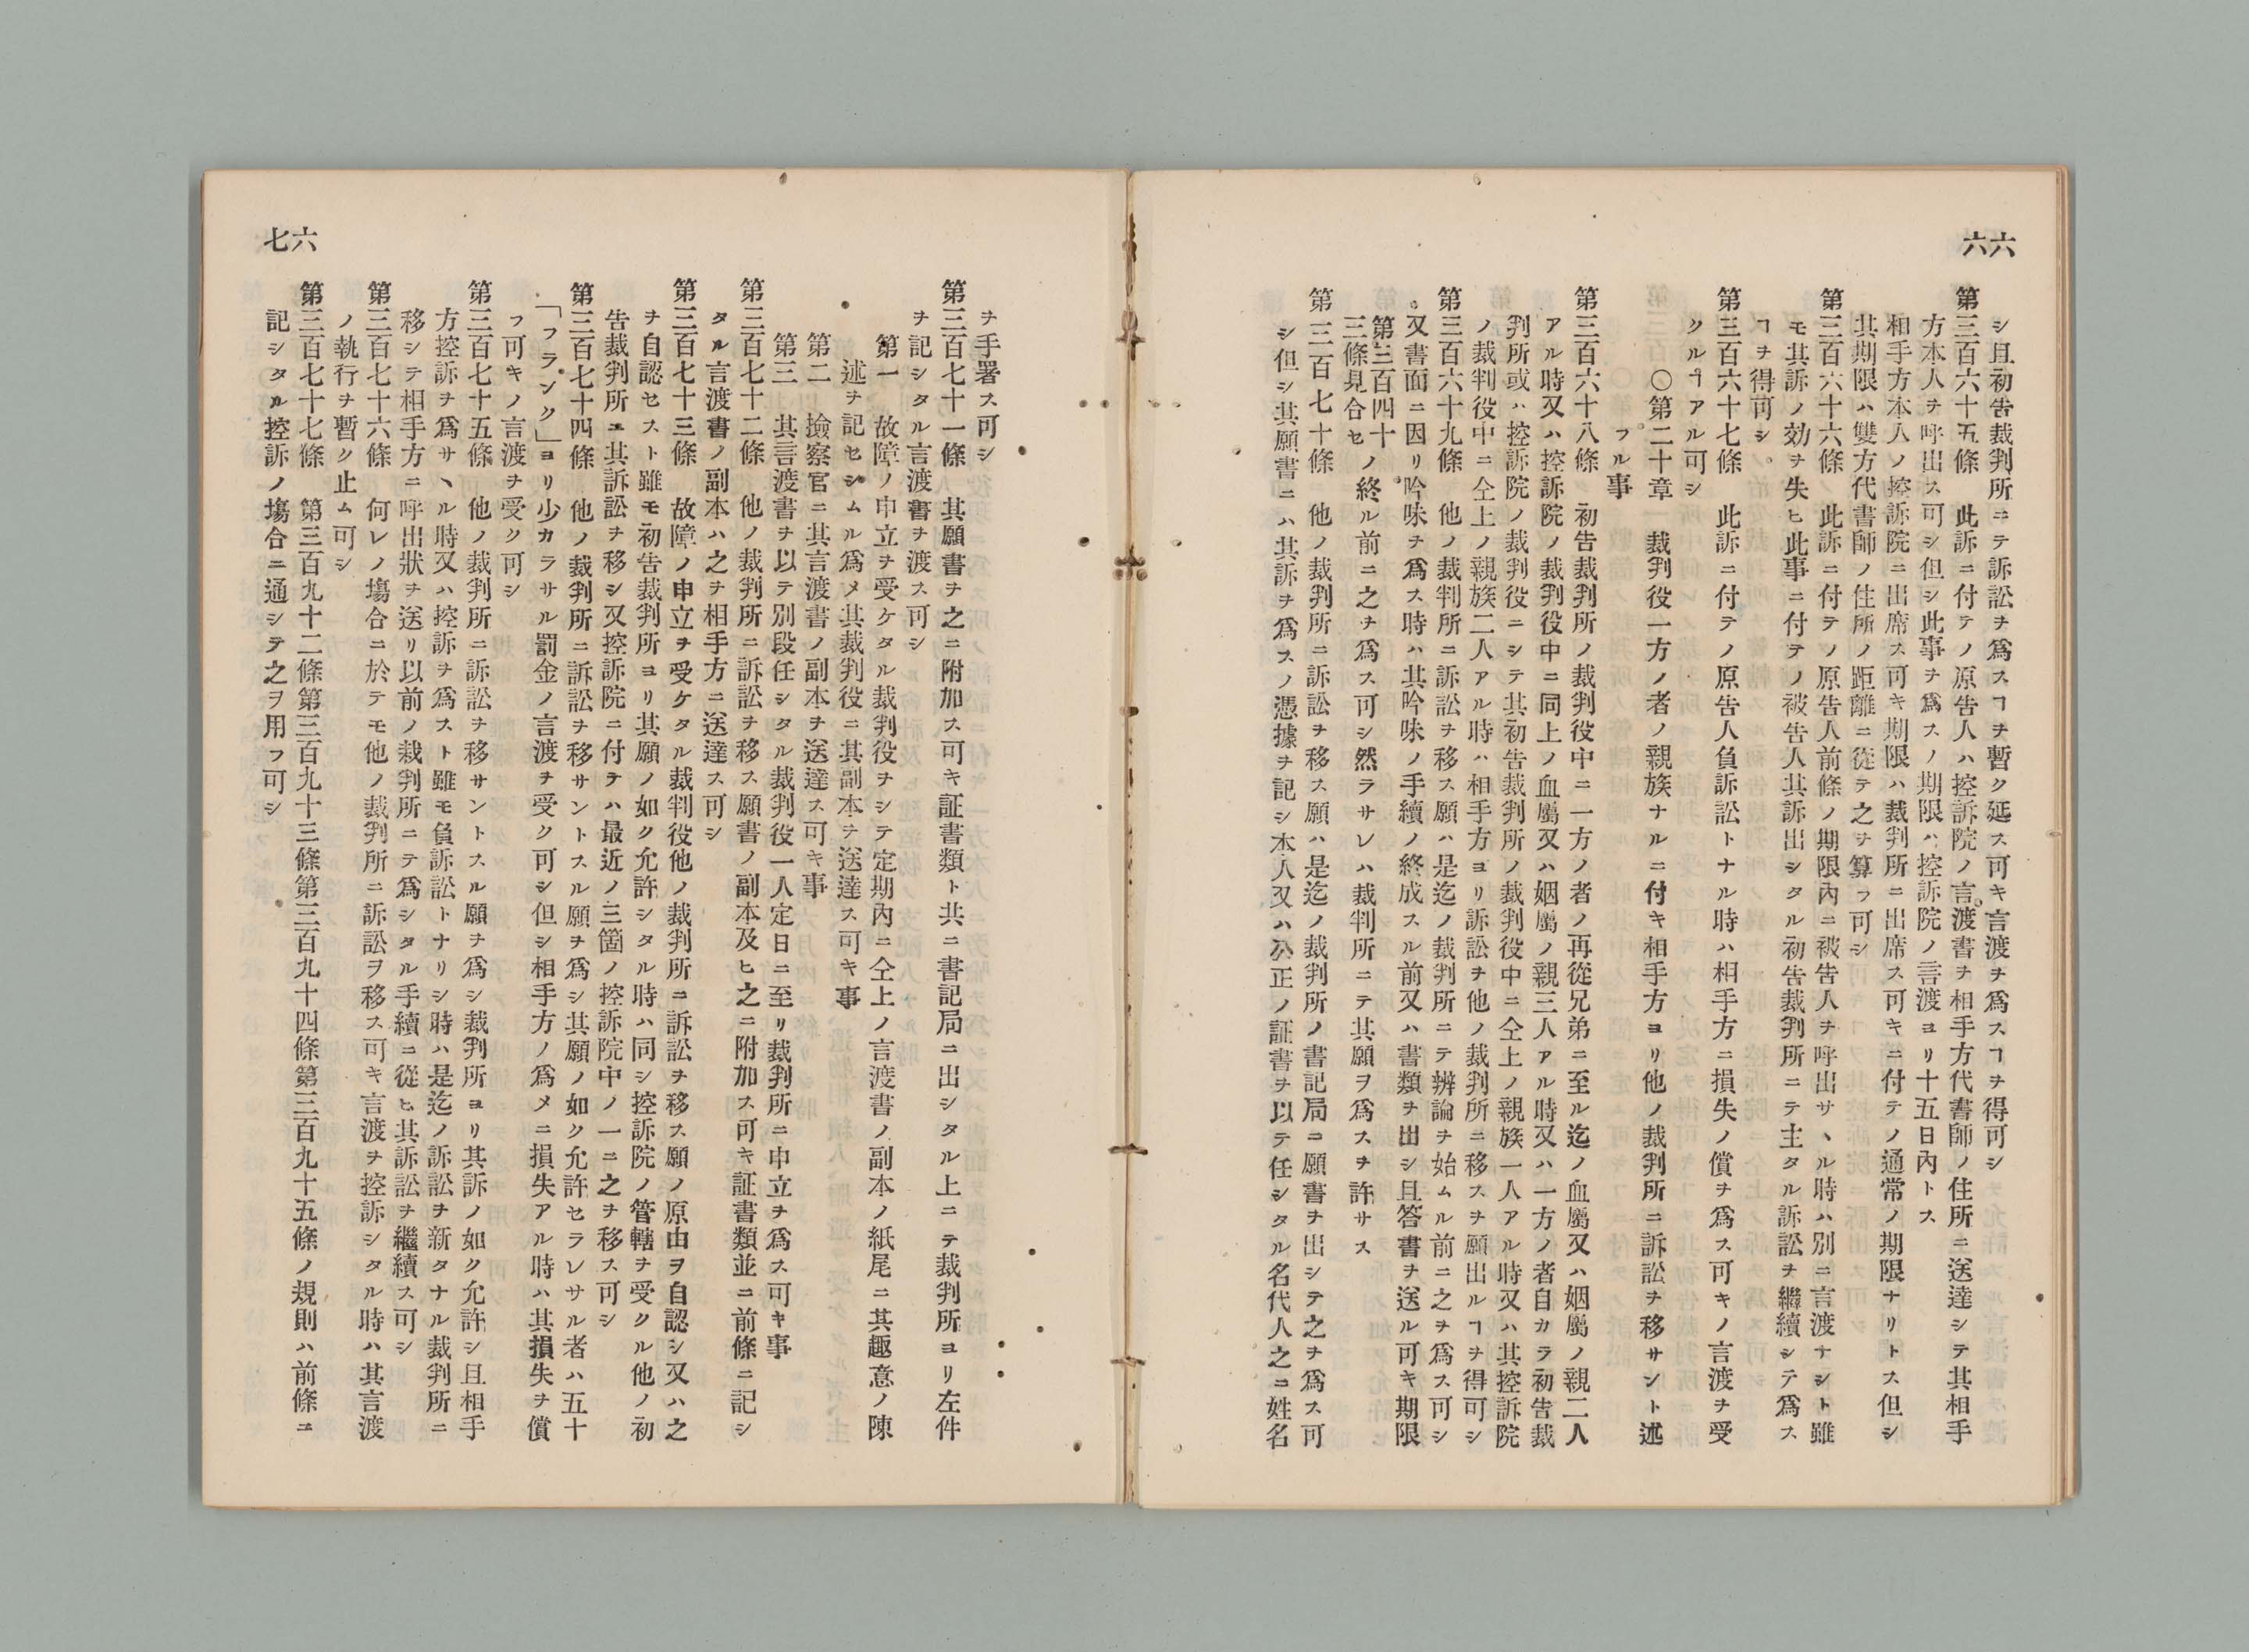 六六
シ且初告裁判所ニテ訴訟ヲ爲スヿヲ暫ク延ス可キ言渡ヲ爲スヿヲ得可シ
第三百六十五條　此訴ニ付テノ原告人ハ控訴院ノ言渡書ヲ相手方代書師ノ住所ニ送達シテ其相手
方本人ヲ呼出ス可シ但シ此事ヲ爲スノ期限ハ控訴院ノ言渡ヨリ十五日內トス
相手方本人ノ控訴院ニ出席ス可キ期限ハ裁判所ニ出席ス可キニ付テノ通常ノ期限ナリトス但シ
其期限ハ雙方代書師ノ住所ノ距離ニ從テ之ヲ算フ可シ
第三百六十六條　此訴ニ付テノ原告人前條ノ期限內ニ被告人ヲ呼出サヽル時ハ別ニ言渡ナシト雖
モ其訴ノ効ヲ失ヒ此事ニ付テノ被告人其訴出シタル初告裁判所ニテ主タル訴訟ヲ繼續シテ爲ス
ヿヲ得可シ
第三百六十七條　此訴ニ付テノ原告人負訴訟トナル時ハ相手方ニ損失ノ償ヲ爲ス可キノ言渡ヲ受
クルヿアル可シ
〇第二十章　裁判役一方ノ者ノ親族ナルニ付キ相手方ヨリ他ノ裁判所ニ訴訟ヲ移サント述
フル事
第三百六十八條　初告裁判所ノ裁判役中ニ一方ノ者ノ再從兄弟ニ至ル迄ノ血屬又ハ姻屬ノ親二人
アル時又ハ控訴院ノ裁判役中ニ同上ノ血屬又ハ姻屬ノ親三人アル時又ハ一方ノ者自カラ初告裁
判所或ハ控訴院ノ裁判役ニシテ其初告裁判所ノ裁判役中ニ仝上ノ親族一人アル時又ハ其控訴院
ノ裁判役中ニ仝上ノ親族二人アル時ハ相手方ヨリ訴訟ヲ他ノ裁判所ニ移スヲ願出ルヿヲ得可シ
第三百六十九條　他ノ裁判所ニ訴訟ヲ移ス願ハ是迄ノ裁判所ニテ辨論ヲ始ムル前ニ之ヲ爲ス可シ
又書面ニ因リ吟味ヲ爲ス時ハ其吟味ノ手續ノ終成スル前又ハ書類ヲ出シ且答書ヲ送ル可キ期限
第三百四十三條見合セノ終ル前ニ之ヲ爲ス可シ然ラサレハ裁判所ニテ其願ヲ爲スヲ許サス
第三百七十條　他ノ裁判所ニ訴訟ヲ移ス願ハ是迄ノ裁判所ノ書記局ニ願書ヲ出シテ之ヲ爲ス可
シ但シ其願書ニハ其訴ヲ爲スノ憑據ヲ記シ本人又ハ公正ノ証書ヲ以テ任シタル名代人之ニ姓名
六七
ヲ手署ス可シ
第三百七十一條　其願書ヲ之ニ附加ス可キ証書類ト共ニ書記局ニ出シタル上ニテ裁判所ヨリ左件
ヲ記シタル言渡書ヲ渡ス可シ
第一　故障ノ申立ヲ受ケタル裁判役ヲシテ定期內ニ仝上ノ言渡書ノ副本ノ紙尾ニ其趣意ノ陳
述ヲ記セシムル爲メ其裁判役ニ其副本ヲ送達ス可キ事
第二　撿察官ニ其言渡書ノ副本ヲ送達ス可キ事
第三　其言渡書ヲ以テ別段任シタル裁判役一人定日ニ至リ裁判所ニ申立ヲ爲ス可キ事
第三百七十二條　他ノ裁判所ニ訴訟ヲ移ス願書ノ副本及ヒ之ニ附加ス可キ証書類並ニ前條ニ記シ
タル言渡書ノ副本ハ之ヲ相手方ニ送達ス可シ
第三百七十三條　故障ノ申立ヲ受ケタル裁判役他ノ裁判所ニ訴訟ヲ移ス願ノ原由ヲ自認シ又ハ之
ヲ自認セスト雖モ初告裁判所ヨリ其願ノ如ク允許シタル時ハ同シ控訴院ノ管轄ヲ受クル他ノ初
告裁判所ニ其訴訟ヲ移シ又控訴院ニ付テハ最近ノ三箇ノ控訴院中ノ一ニ之ヲ移ス可シ
第三百七十四條　他ノ裁判所ニ訴訟ヲ移サントスル願ヲ爲シ其願ノ如ク允許セラレサル者ハ五十
「フランク」ヨリ少カラサル罰金ノ言渡ヲ受ク可シ但シ相手方ノ爲メニ損失アル時ハ其損失ヲ償
フ可キノ言渡ヲ受ク可シ
第三百七十五條　他ノ裁判所ニ訴訟ヲ移サントスル願ヲ爲シ裁判所ヨリ其訴ノ如ク允許シ且相手
方控訴ヲ爲サヽル時又ハ控訴ヲ爲スト雖モ負訴訟トナリシ時ハ是迄ノ訴訟ヲ新タナル裁判所ニ
移シテ相手方ニ呼出狀ヲ送リ以前ノ裁判所ニテ爲シタル手續ニ從ヒ其訴訟ヲ繼續ス可シ
第三百七十六條　何レノ塲合ニ於テモ他ノ裁判所ニ訴訟ヲ移ス可キ言渡ヲ控訴シタル時ハ其言渡
ノ執行ヲ暫ク止ム可シ
第三百七十七條　第三百九十二條第三百九十三條第三百九十四條第三百九十五條ノ規則ハ前條ニ
記シタル控訴ノ塲合ニ通シテ之ヲ用フ可シ